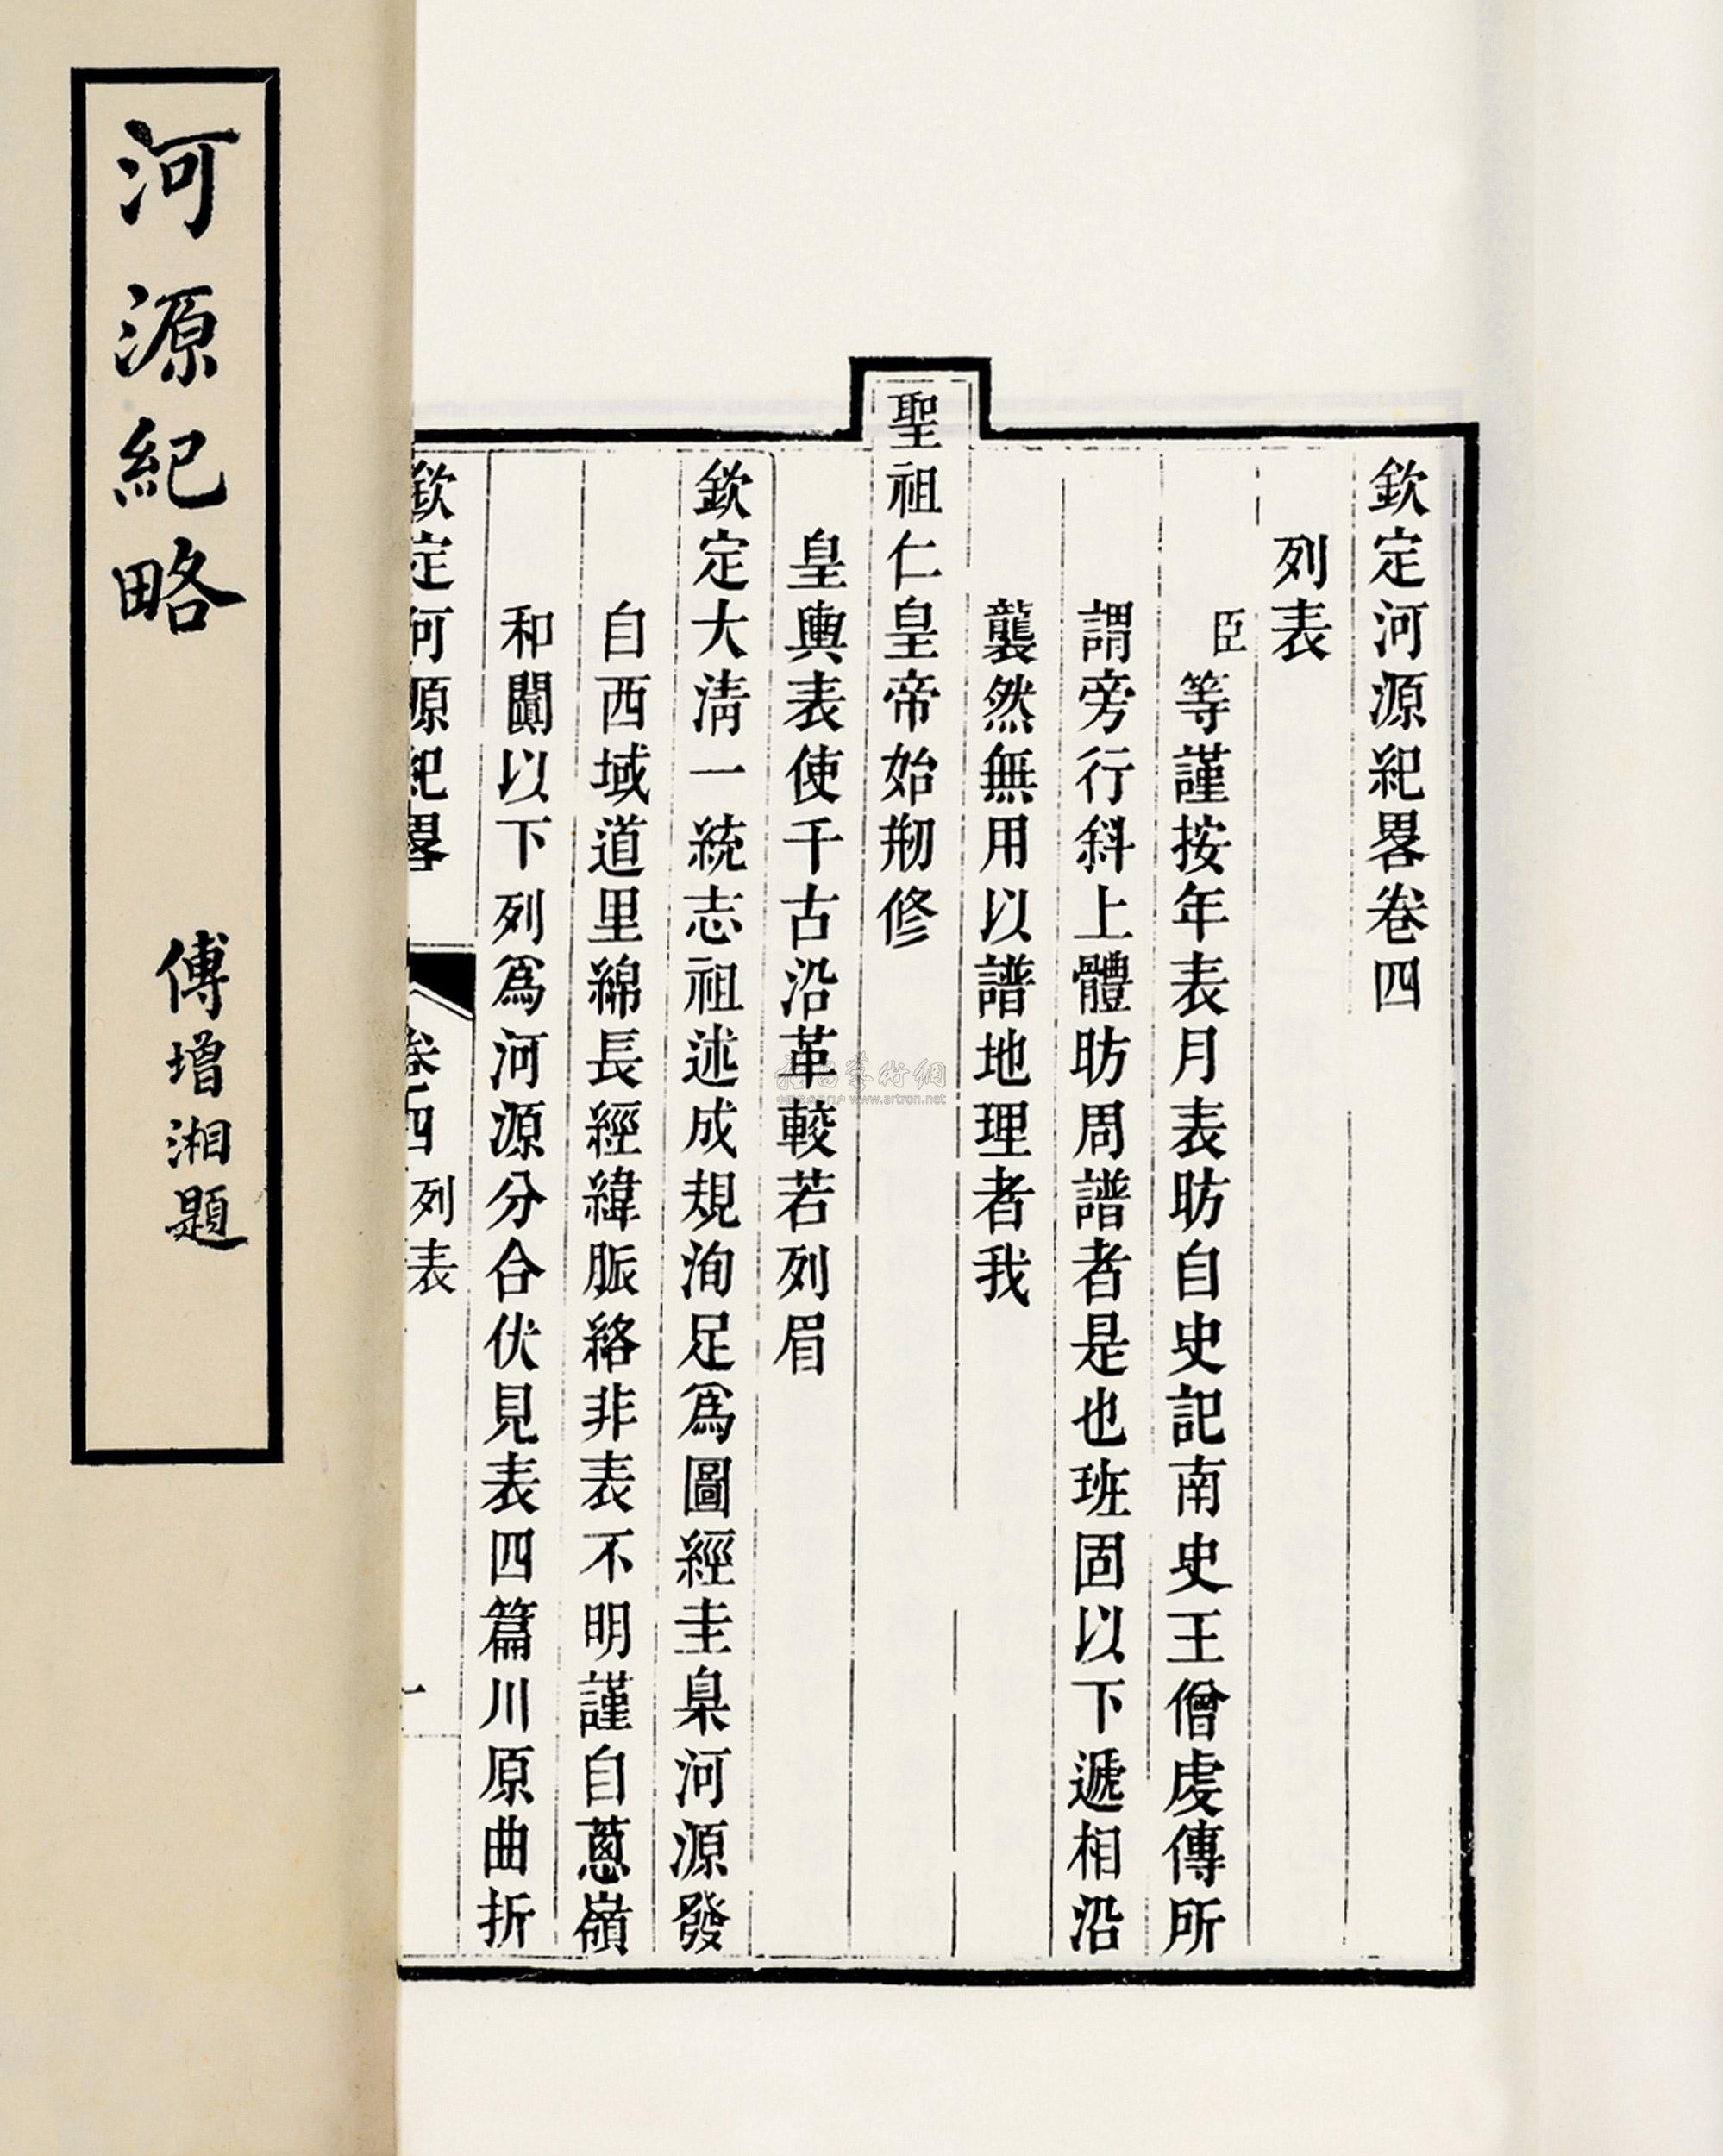 欽定河源紀畧卷四
列表
臣等謹按年表月表昉自史記南史王僧虔傳所
謂旁行斜上體昉周譜者是也班固以下遞相沿
襲然無用以譜地理者我
聖祖仁皇帝始刱修
皇輿表使千古沿革較若列眉
欽定大清一統志祖述成規洵足爲圖經圭臬河源發
自西域道里綿長經緯脈絡非表不明謹自蔥嶺
和闐以下列爲河源分合伏見表四篇川原曲折
欽定河源紀畧
卷四 列表
一
河源紀略
傅增湘題
雅昌藝術網
www.artron.net